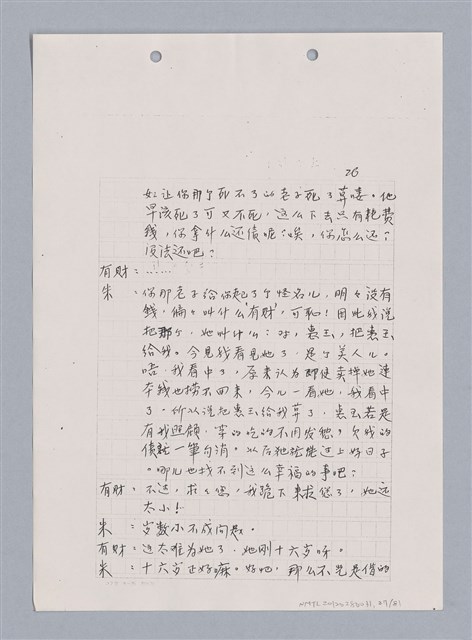 26
如让你那个死不了的老子死了算喽。他
早该死了可又不死，这么下去只有耗费
钱，你拿什么还债呢？唉，你怎么还？
没法还吧？
有财：……
朱：你那老子给你起了个怪名儿，明々没有
钱，偏々叫什么‘有财’，可耻！因此我说
把那个，她叫什么：对，惠玉，把惠玉
给我。今儿我看见她了，是个美人儿。
嗯，我看中了，原来认为即使卖掉她连
本钱也捞不回来，今儿一看她，我看中
了。所以说把惠玉给我算了，惠玉若是
有我照顾，穿的吃的不用发愁，欠我的
债就一筆勾消。以后她还能过上好日子
。哪儿也找不到这么幸福的事吧？
有财：不过，拄々您，我跪下来求您了，她还
太小！
朱：岁数小不成问题。
有财：这太难为她了，她刚十六岁呀。
朱：十六岁正好嘛。好吧，那么不光是借的